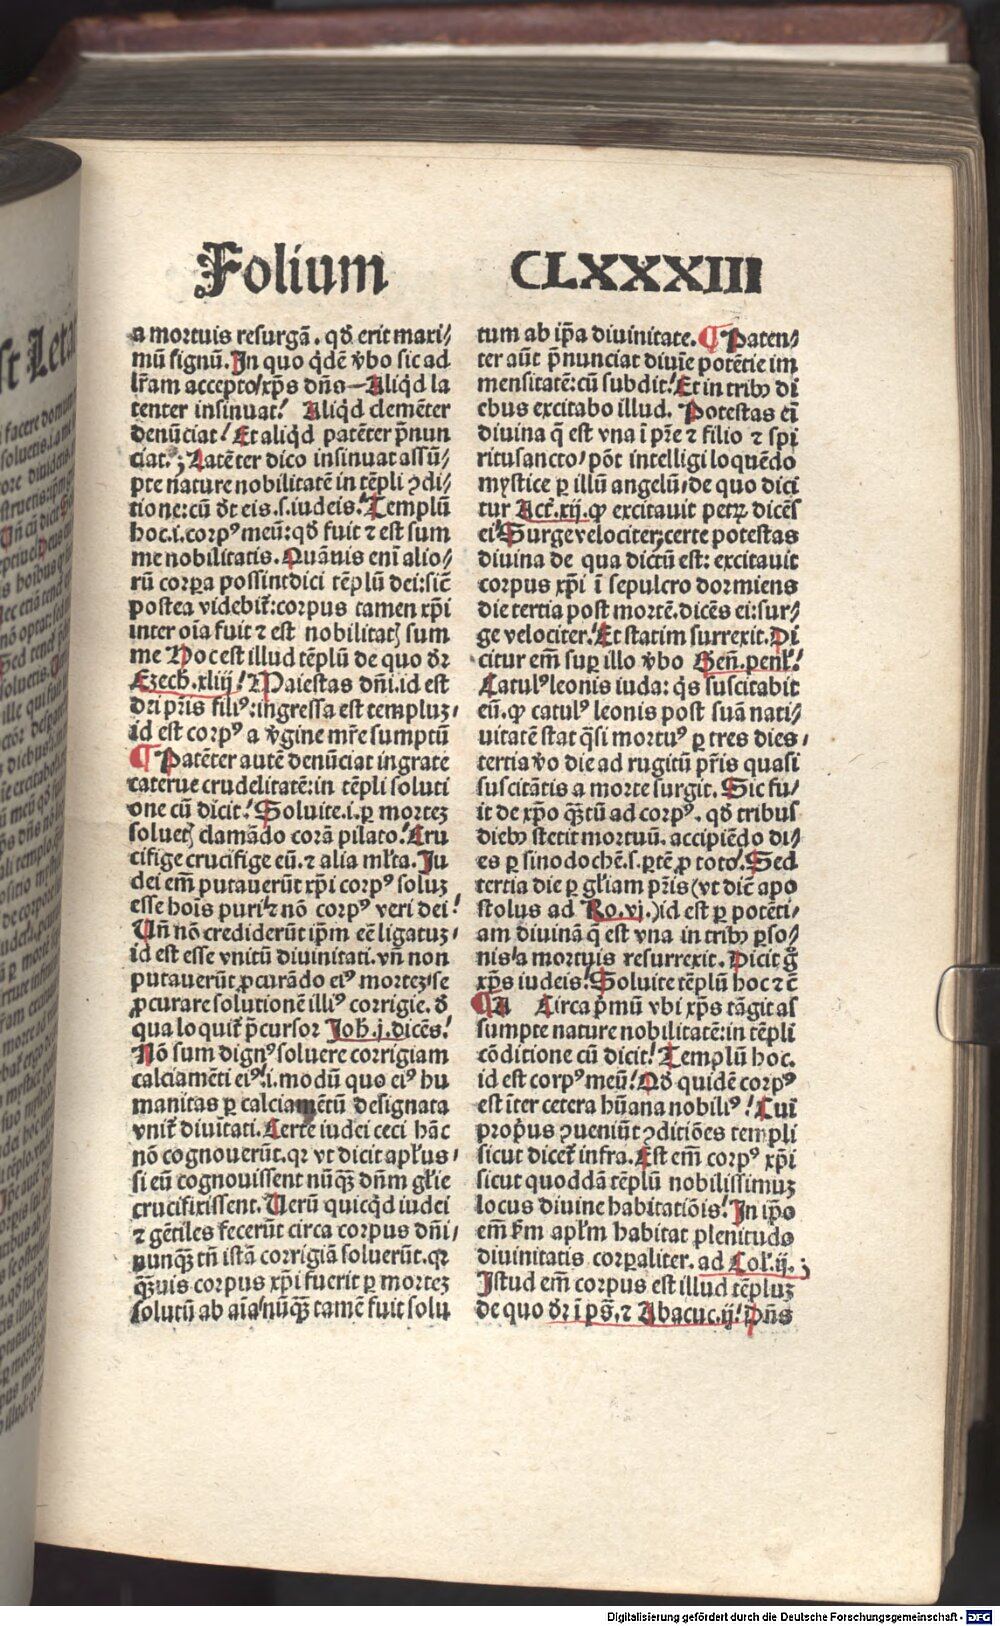 Folium CLXXXIII
a mortuis resurgā. qd̄ erit maxi⸗
mū signū. In quo q̇dē v̄bo sic ad
lr̄am accepto/xp̄s dn̄s — Aliq̇d la
tenter insinuat! Aliq̇d clemēter
denūciat! Et aliq̇d patēter p̄nun
ciat. Latēter dico insinuat assū⸗
pte nature nobilitatē in tēpli ꝯdi⸗
tione: cū dr̄ eis .s. iudeis! Templū
hoc .i. corpꝰ meū: qd̄ fuit ⁊ est sum
me nobilitatis. Quāuis eni alio⸗
rū corꝑa possint dici tēplū dei: sic̄
postea videbit̄: corpus tamen xp̄i
inter oīa fuit ⁊ est nobilitatꝭ sum
me Hoc est illud tēplū de quo dr̄
Ezech. xliij! Maiestas dn̄i. id est
dei pr̄is filiꝰ: ingressa est templuꝫ/
id est corpꝰ a v̄gine mr̄e sumptū
¶ Patēter autē denūciat ingrate
caterue crudelitatē: in tēpli soluti
one cū dicit! Soluite .i. ꝑ morteꝫ
soluetꝭ clamādo corā pilato! Cru
cifige crucifige eū. ⁊ alia ml̄ta. Ju
dei em̄ putauerūt xp̄i corpꝰ soluꝫ
esse hoīs puri/⁊ nō corpꝰ veri dei!
Un̄ nō crediderūt ip̄m eē ligatuꝫ/
id est esse vnitū diuinitati. vn̄ non
putauerūt ꝓcurādo eiꝰ morteꝫ/se
ꝓcurare solutionē illiꝰ corrigie. d̄
qua loquit̄ p̄cursor Joh. j. dicēs!
Nō sum dignꝰ soluere corrigiam
calciamēti eiꝰ! .i. modū quo eiꝰ hu
manitas ꝑ calciamētū designata
vnit̄ diuitati. Certe iudei ceci hāc
nō cognouerūt. qꝛ vt dicit apl̄us/
si eū cognouissent nūqꝫ̄ dn̄m gl̄ie
crucifixissent. Uerū quicq̇d iudei
⁊ gētiles fecerūt circa corpus dn̄i/
nunqꝫ̄ tn̄ istā corrigiā soluerūt. qꝛ
qꝫ̄uis corpus xp̄i fuerit ꝑ morteꝫ
solutū ab aīa/nūqꝫ̄ tamē fuit solu
tum ab ip̄a diuinitate. ¶ Paten⸗
ter aūt p̄nunciat diuīe potētie im
mensitatē: cū subdit! Et in tribꝰ di
ebus excitabo illud. Potestas ei
diuina q̄ est vna i pr̄e ⁊ filio ⁊ spi
ritusancto/ pōt intelligi loquēdo
mystice ꝑ illū angelū/ de quo dici
tur Act. xij. ꝙ excitauit petꝝ dicēs
ei! Surge velociter: certe potestas
diuina de qua dictū est: excitauit
corpus xp̄i i sepulcro dormiens
die tertia post mortē. dicēs ei: sur⸗
ge velociter! Et statim surrexit. Di
citur em̄ suꝑ illo v̄bo Gen̄. penl̄!
Catulꝰ leonis iuda: q̇s suscitabit
eū. ꝙ catulꝰ leonis post suā nati⸗
uitatē stat q̇si mortuꝰ ꝑ tres dies/
tertia v̄o die ad rugitū pr̄is quasi
suscitātis a morte surgit. Sic fu⸗
it de xp̄o qꝫ̄tū ad corpꝰ. qd̄ tribus
diebꝰ stetit mortuū. accipiēdo di⸗
es ꝑ sinodochē .s. ꝑtē ꝓ toto! Sed
tertia die ꝑ gl̄iam pr̄is (vt dic̄ apo
stolus ad Ro. vj.) id est ꝑ potēti⸗
am diuinā q̄ est vna in tribꝰ ꝑso⸗
nis/a mortuis resurrexit. Dicit gͦ
xp̄s iudeis! Soluite tēplū hoc ⁊ c̄
¶ A Circa p̄mū vbi xp̄s tāgit as
sumpte nature nobilitatē: in tēpli
cōditione cū dicit! Templū hoc.
id est corpꝰ meū! Qd̄ quidē corpꝰ
est īter cetera hūana nobiliꝰ! Cui
propͥus ꝯueniūt ꝯditiōes templi
sicut dicet̄ infra. Est em̄ corpꝰ xp̄i
sicut quoddā tēplū nobilissimuꝫ
locus diuine habitatiōis! In ip̄o
em̄ km̄ apl̄m habitat plenitudo
diuinitatis corꝑaliter. ad Col. ij.
Istud em̄ corpus est illud tēpluꝫ
de quo dr̄ i ps̄. ⁊ Abacuc. ij! Dn̄s
Digitalisierung gefördert durch die Deutsche Forschungsgemeinschaft - DFG